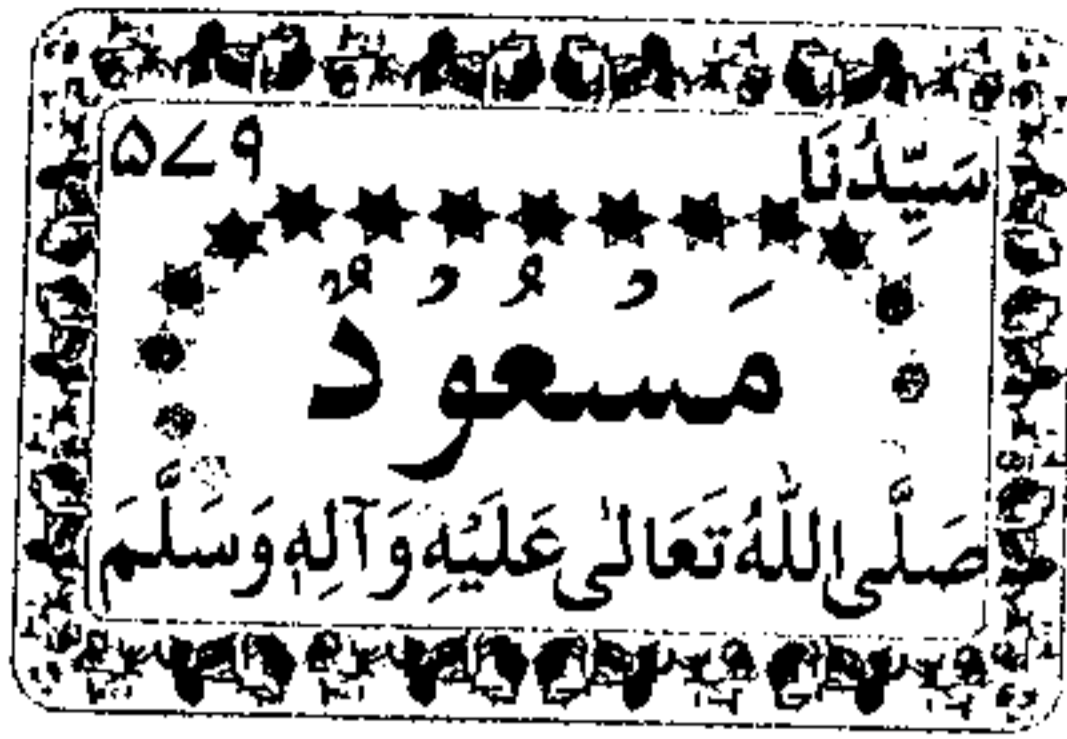 سَيِّدُنَا ۵۷۹
مَسْعُوْدٌ
صَلَّى اللّٰهُ تَعَالٰى عَلَيْهِ وَآلِهٖ وَسَلَّمَ